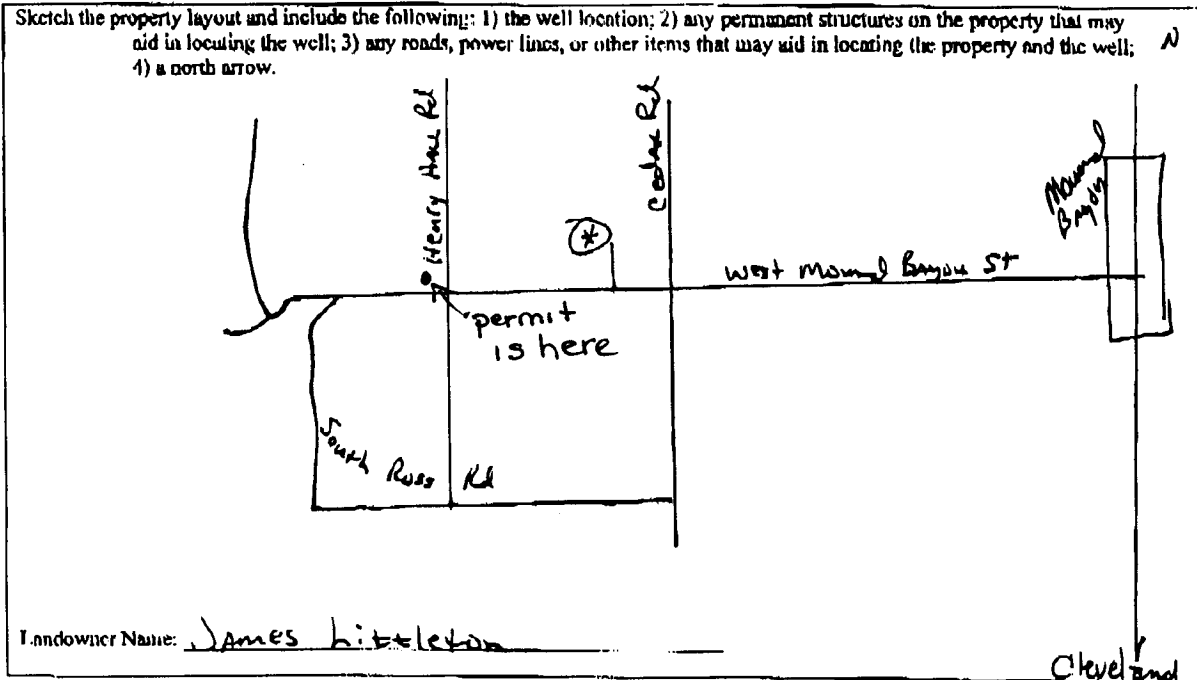 Sketch the property layout and include the following: 1) the well location; 2) any permanent structures on the property that may
aid in locating the well; 3) any roads, power lines, or other items that may aid in locating the property and the well;
4) a north arrow.
N
Henry Hall Rd
Cedar Rd
Mound
Bayou
*
West Mound Bayou St
permit
is here
South Russ Rd
Landowner Name: James Littleton
Cleveland